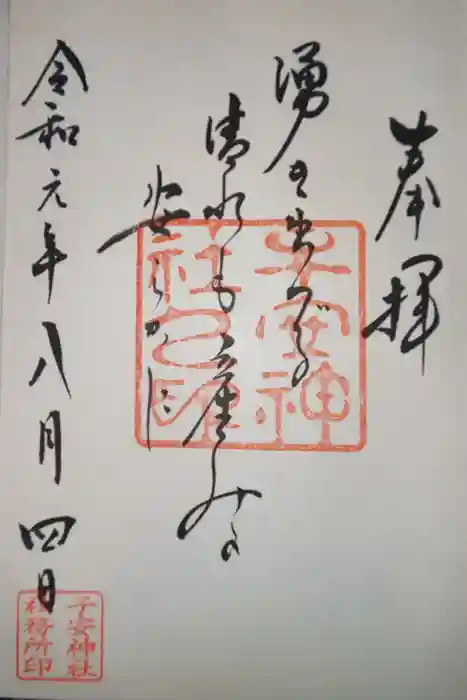 奉拝
湧き出づる
清水も産み
安らかに
令和元年八月四日
子安神
社之印
子安神社
社務所印